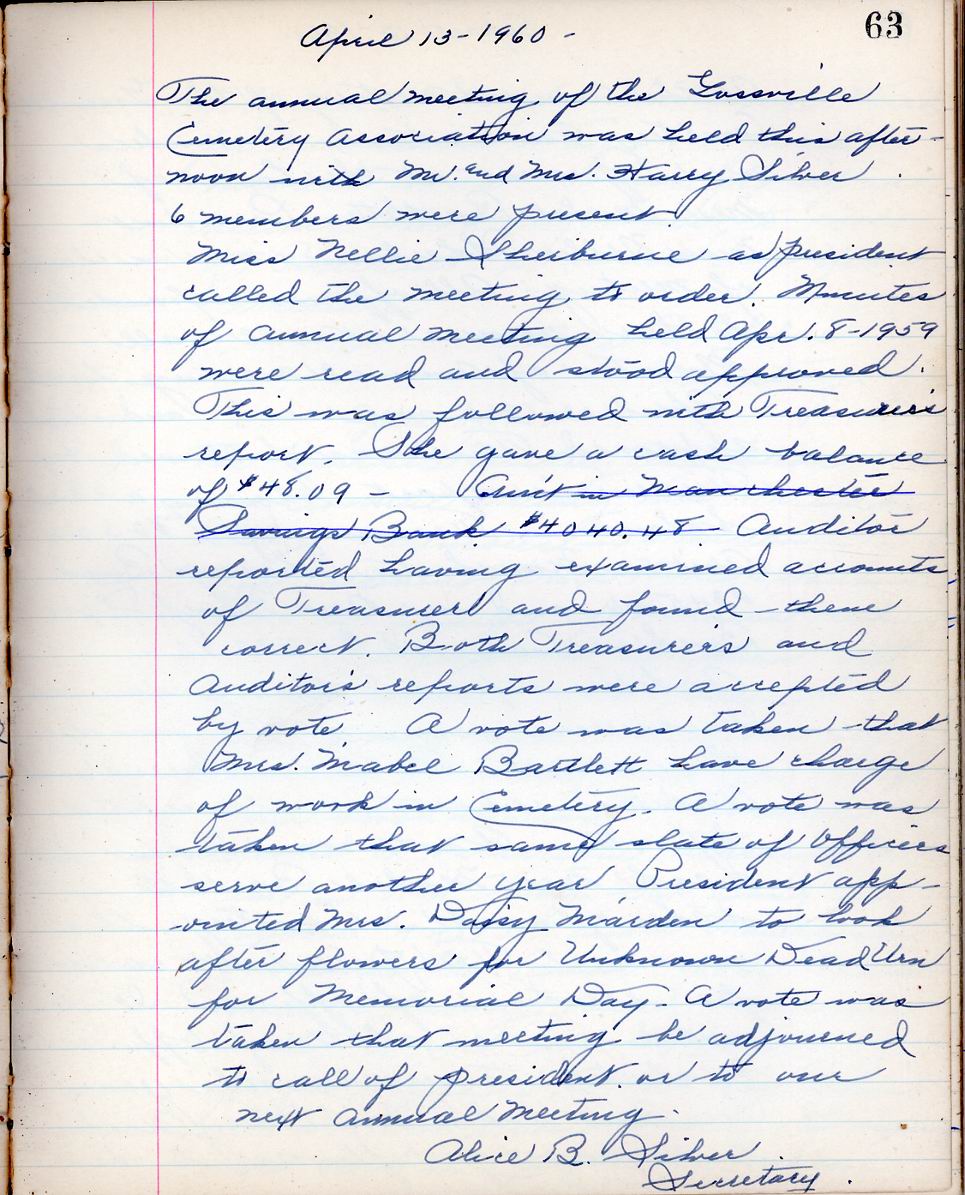 63
April 13-1960-
The annual meeting of the Gossville
Cemetery Association was held this after-
noon with Mr. and Mrs. Harry Silver.
6 members were present
Miss Nellie Sherburne as president
called the meeting to order. Minutes
of annual meeting held Apr. 8-1959
were read and stood approved.
This was followed with Treasurer's
report. She gave a cash balance
of $48.09 - Am't in Manchester
Savings Bank $4040.48 Auditor
reported having examined accounts
of Treasurer and found them
correct. Both Treasurer's and
Auditor's reports were accepted
by vote A vote was taken that
Mrs. Mabel Bartlett have charge
of work in Cemetery. A vote was
taken that same slate of Officers
serve another year President app-
ointed Mrs. Daisy Marden to look
after flowers for Unknown Dead Urn
for Memorial Day. A vote was
taken that meeting be adjourned
to call of president or to our
next annual meeting.
Alice B. Silver.
Secretary.